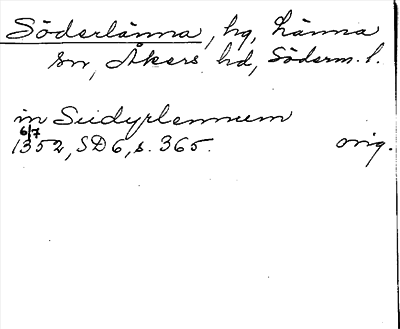 Söderlänna, hg, Länna
sn, Åkers hd, Söderm. l.
in Sudyrlennum
6/7
1352, SD 6, s. 365. orig.